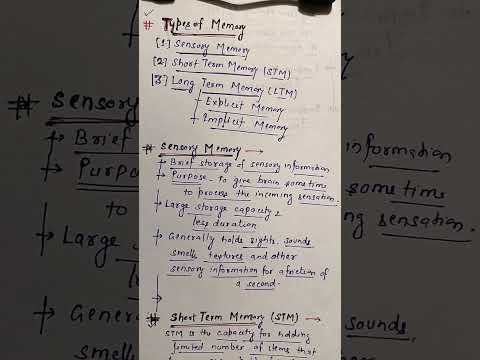 # Types of Memory
[1] Sensory Memory
[2] Short Term Memory (STM)
[3] Long Term Memory (LTM)
→ Explicit Memory
→ Implicit Memory
* Sensory Memory →
→ Brief storage of sensory information
→ Purpose - to give brain sometime
to process the incoming sensation.
→ Large storage capacity &
less duration
→ Generally holds sights, sounds
smells, textures and other
sensory information for a fraction of
a second.
→
* Short Term Memory (STM) →
STM is the capacity for holding
limited number of items that